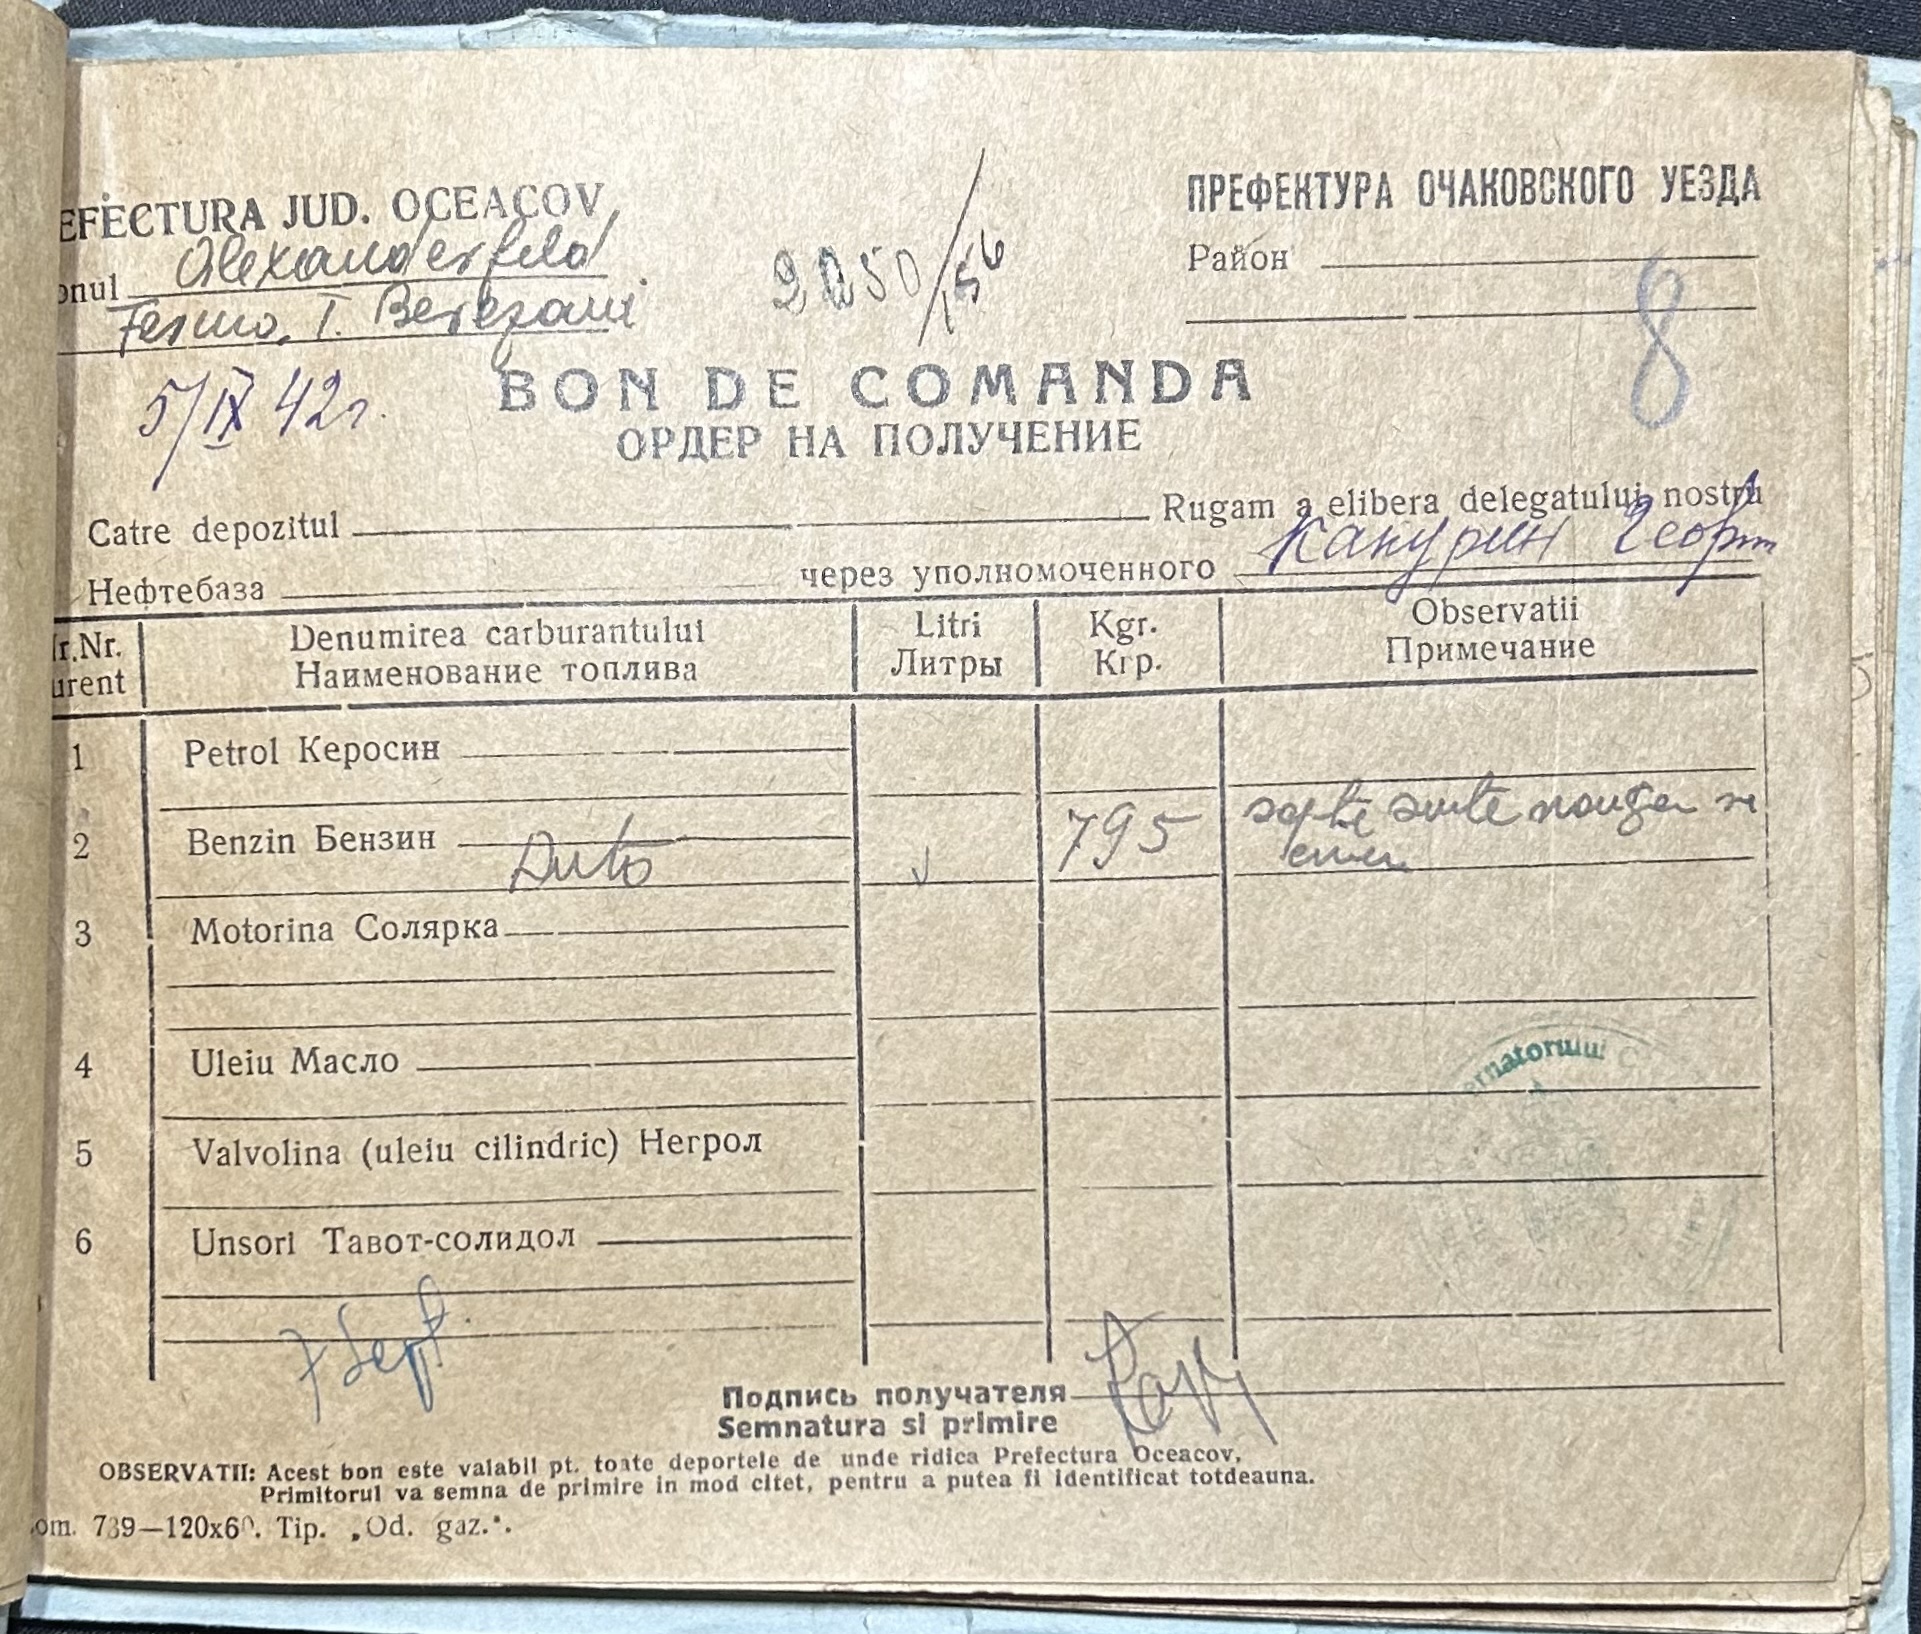 EFECTURA JUD. OCEACOV
ПРЕФЕКТУРА ОЧАКОВСКОГО УЕЗДА
onul Alexanderfeld
Район
Ferma I. Berezani
8
5/IX 42г.
BON DE COMANDA
ОРДЕР НА ПОЛУЧЕНИЕ
Catre depozitul Rugam a elibera delegatului nostru
Нефтебаза через уполномоченного Канурин Георг
r.Nr. urent
Denumirea carburantului
Наименование топлива
Litri
Литры
Kgr.
Кгр.
Observatii
Примечание
1 Petrol Керосин
2 Benzin Бензин Auto 795 sapte sute nouăzeci
3 Motorina Солярка
4 Uleiu Масло
5 Valvolina (uleiu cilindric) Негрол
6 Unsori Тавот-солидол
rnatorului
7 Sept.
Подпись получателя
Semnatura si primire
OBSERVATII: Acest bon este valabil pt. toate deportele de unde ridica Prefectura Oceacov,
Primitorul va semna de primire in mod citet, pentru a putea fi identificat totdeauna.
om. 739—120x60. Tip. „Od. gaz.".